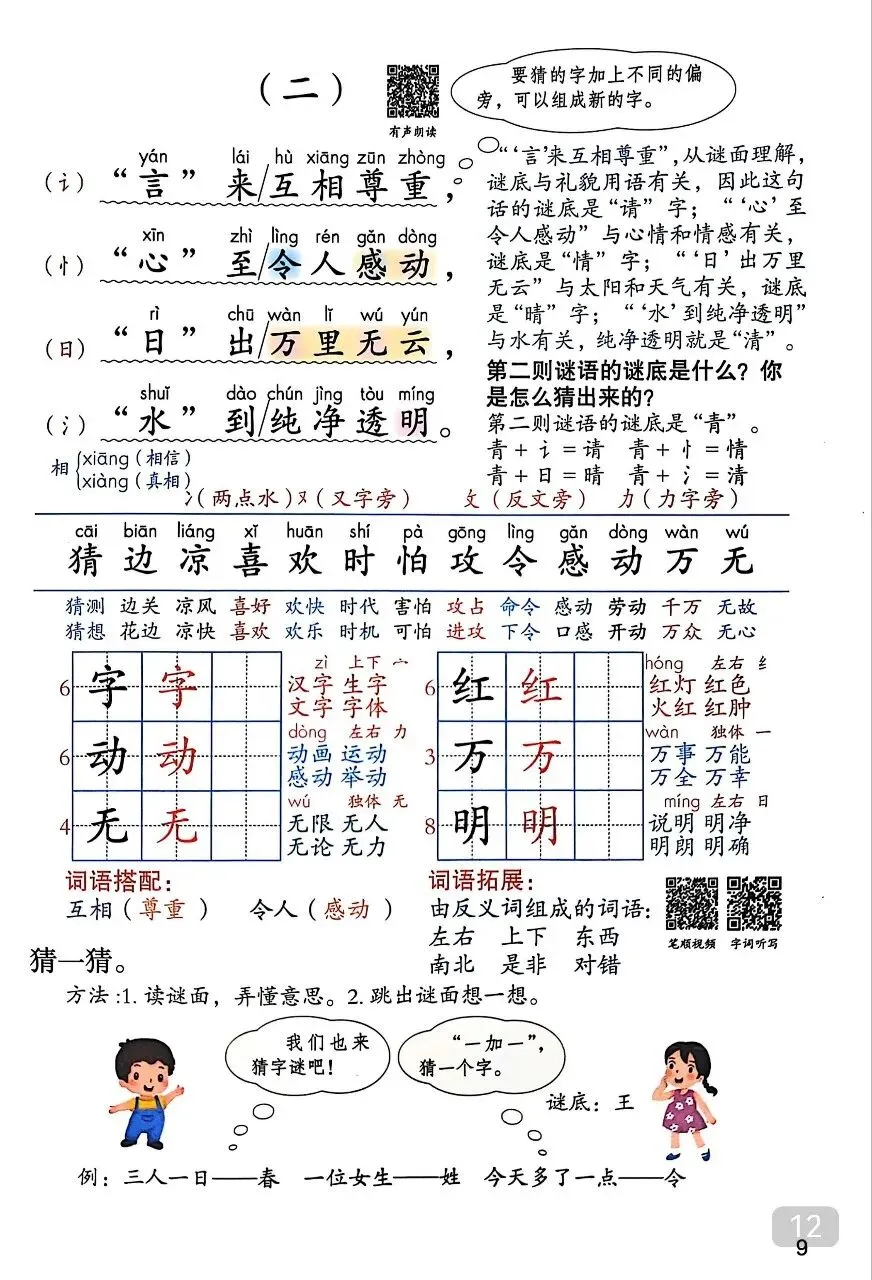 （二）
有声朗读
要猜的字加上不同的偏
旁，可以组成新的字。
yán lái hù xiāng zūn zhòng
（讠）“言”来/互相尊重，
xīn zhì lìng rén gǎn dòng
（忄）“心”至/令人感动，
rì chū wàn lǐ wú yún
（日）“日”出/万里无云，
shuǐ dào chún jìng tòu míng
（氵）“水”到/纯净透明。
“‘言’来互相尊重”，从谜面理解，
谜底与礼貌用语有关，因此这句
话的谜底是“请”字；“‘心’至
令人感动”与心情和情感有关，
谜底是“情”字；“‘日’出万里
无云”与太阳和天气有关，谜底
是“晴”字；“‘水’到纯净透明”
与水有关，纯净透明就是“清”。
第二则谜语的谜底是什么？你
是怎么猜出来的？
第二则谜语的谜底是“青”。
青＋讠＝请 青＋忄＝情
青＋日＝晴 青＋氵＝清
相 xiāng（相信）
xiàng（真相）
冫（两点水）又（又字旁） 攵（反文旁） 力（力字旁）
cāi biān liáng xǐ huān shí pà gōng lìng gǎn dòng wàn wú
猜 边 凉 喜 欢 时 怕 攻 令 感 动 万 无
猜测 边关 凉风 喜好 欢快 时代 害怕 攻占 命令 感动 劳动 千万 无故
猜想 花边 凉快 喜欢 欢乐 时机 可怕 进攻 下令 口感 开动 万众 无心
zì 上下 宀
6 字 字 汉字 生字
文字 字体
dòng 左右 力
6 动 动 动画 运动
感动 举动
wú 独体 无
4 无 无 无限 无人
无论 无力
hóng 左右 纟
6 红 红 红灯 红色
火红 红肿
wàn 独体 一
3 万 万 万事 万能
万全 万幸
míng 左右 日
8 明 明 说明 明净
明朗 明确
词语搭配：
互相（尊重） 令人（感动）
词语拓展：
由反义词组成的词语：
左右 上下 东西
南北 是非 对错
笔顺视频 字词听写
猜一猜。
方法：1. 读谜面，弄懂意思。2. 跳出谜面想一想。
我们也来
猜字谜吧！
“一加一”，
猜一个字。
谜底：王
例：三人一日——春 一位女生——姓 今天多了一点——令
12
9